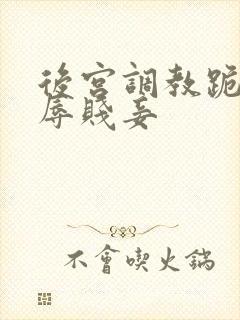 後宮調教跪
辱賤妾
不會喫火鍋